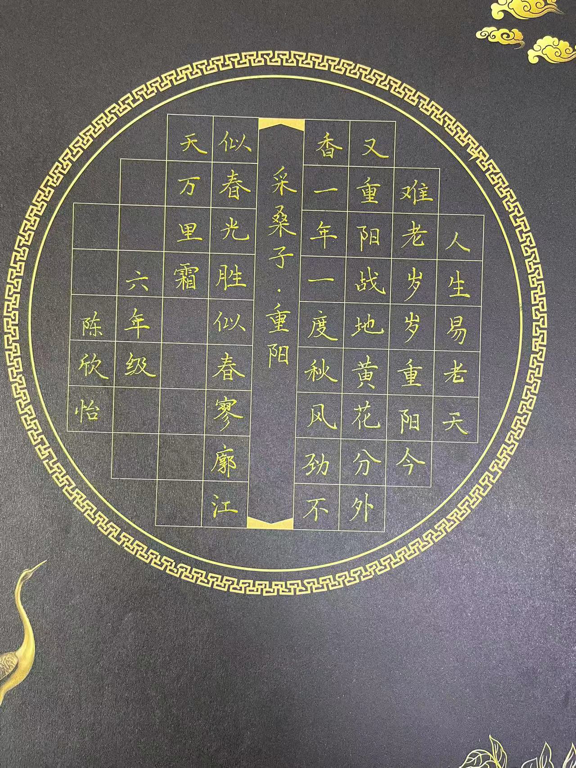 人生易老天
难老岁岁重阳今
又重阳战地黄花分外
香一年一度秋风劲不
采桑子·重阳
似春光胜似春寥廓江
天万里霜
六年级
陈欣怡